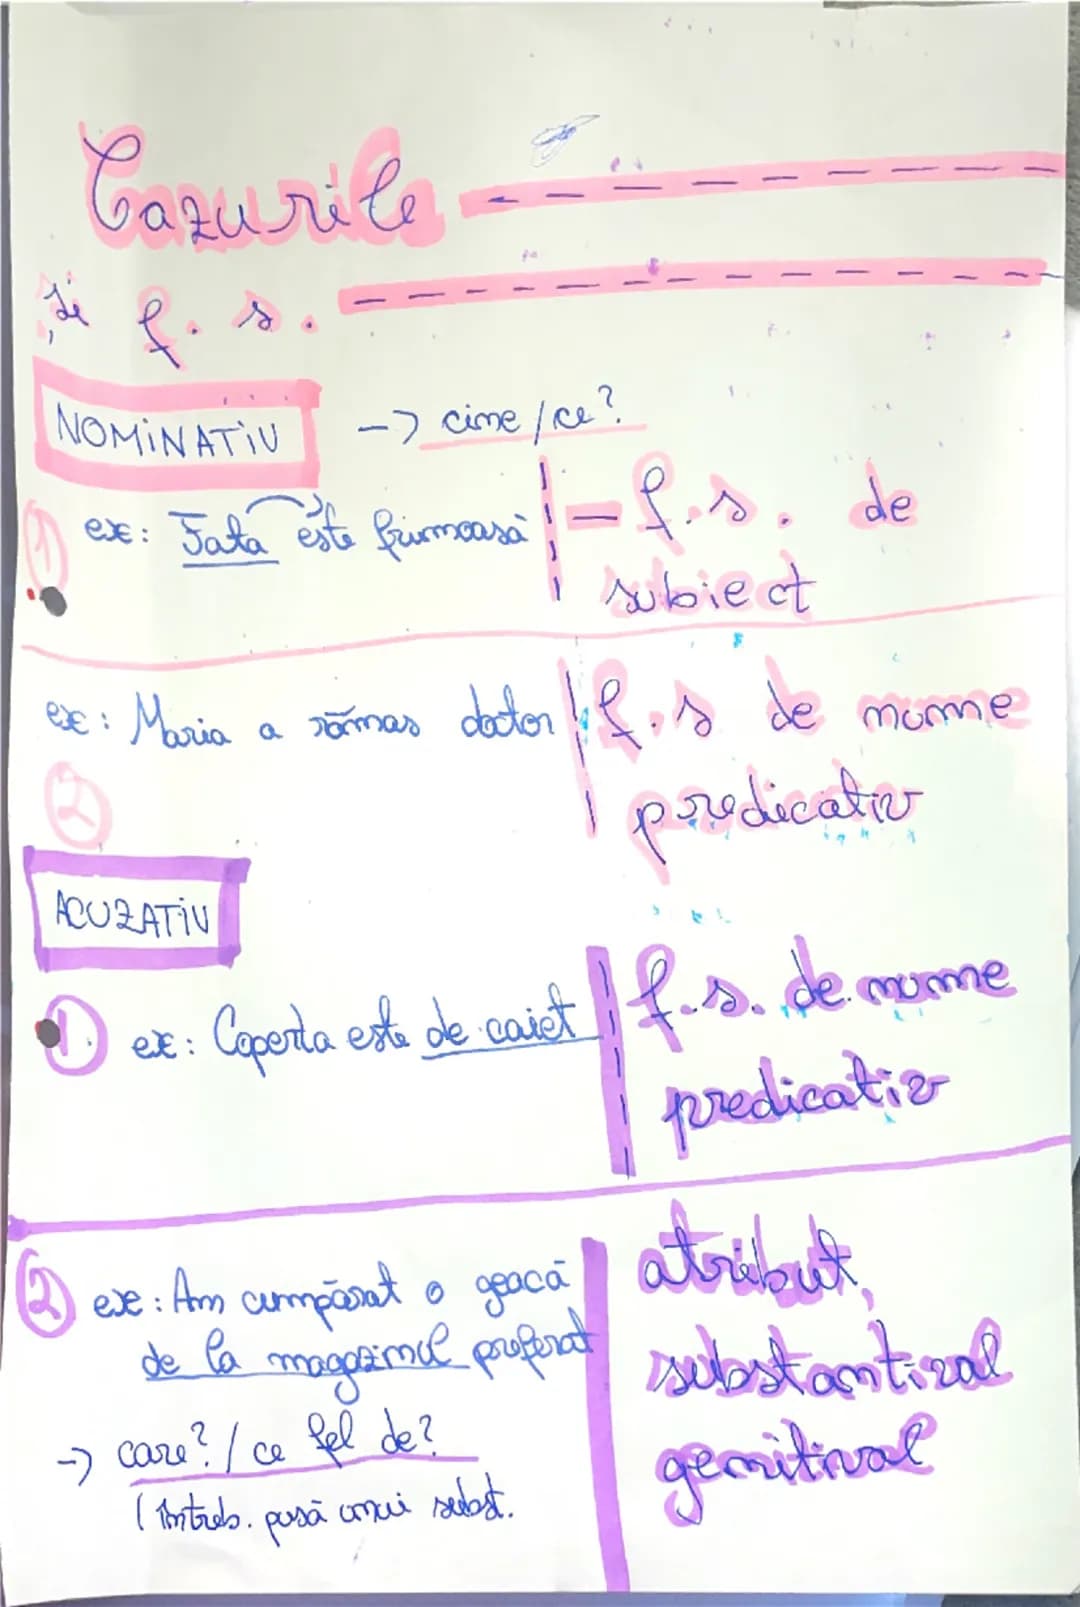 Cazurile
și f. s.
NOMINATIV -> cine / ce?
1 ex: Fata este frumoasă - f.s. de
subiect
ex: Maria a rămas doctor f.s de nume
2 predicativ
ACUZATIV
1 ex: Coperta este de caiet f.s. de nume
predicativ
2 ex: Am cumpărat o geacă atribut,
de la magazinul preferat substantival
-> care? / ce fel de? genitival
( întreb. pusă unui subst.